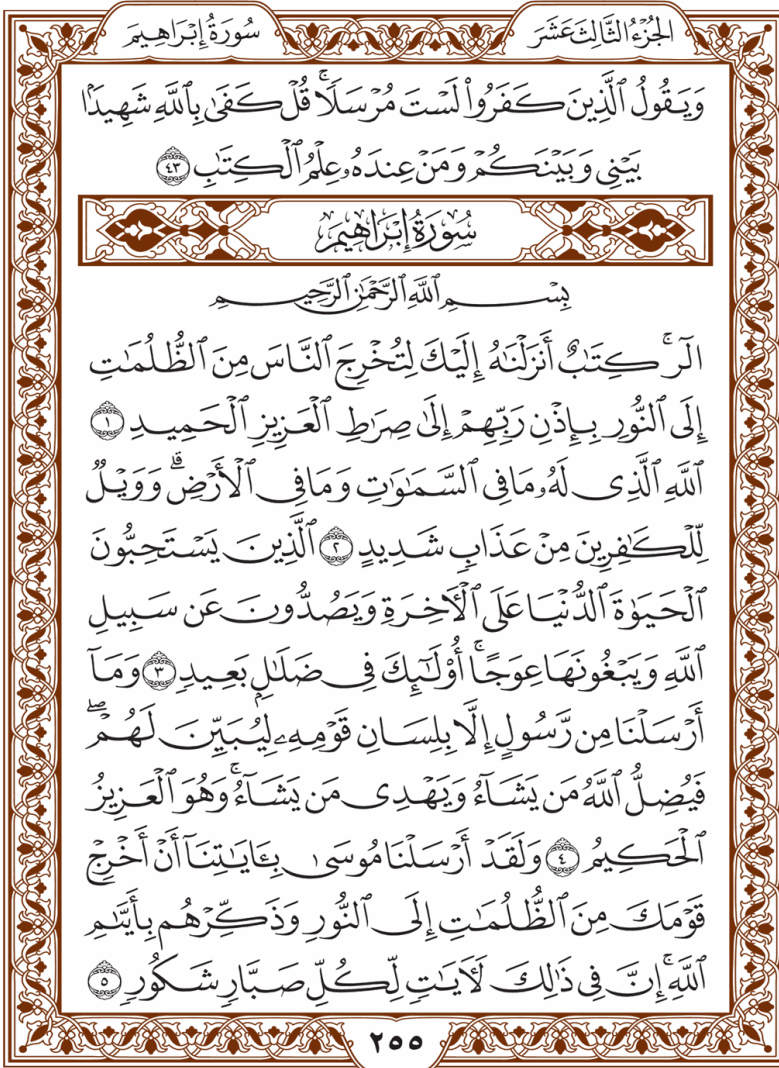 الجُزْءُ الثَّالِثَ عَشَرَ
سُورَةُ إِبْرَاهِيمَ
وَيَقُولُ ٱلَّذِينَ كَفَرُوا۟ لَسْتَ مُرْسَلًاۚ قُلْ كَفَىٰ بِٱللَّهِ شَهِيدًۢا
بَيْنِى وَبَيْنَكُمْ وَمَنْ عِندَهُۥ عِلْمُ ٱلْكِتَٰبِ ٤٣
سُورَةُ إِبْرَاهِيمَ
بِسْمِ ٱللَّهِ ٱلرَّحْمَٰنِ ٱلرَّحِيمِ
الٓرۚ كِتَٰبٌ أَنزَلْنَٰهُ إِلَيْكَ لِتُخْرِجَ ٱلنَّاسَ مِنَ ٱلظُّلُمَٰتِ
إِلَى ٱلنُّورِ بِإِذْنِ رَبِّهِمْ إِلَىٰ صِرَٰطِ ٱلْعَزِيزِ ٱلْحَمِيدِ ١
ٱللَّهِ ٱلَّذِى لَهُۥ مَا فِى ٱلسَّمَٰوَٰتِ وَمَا فِى ٱلْأَرْضِۗ وَوَيْلٌ
لِّلْكَٰفِرِينَ مِنْ عَذَابٍ شَدِيدٍ ٢ ٱلَّذِينَ يَسْتَحِبُّونَ
ٱلْحَيَوٰةَ ٱلدُّنْيَا عَلَى ٱلْأَخِرَةِ وَيَصُدُّونَ عَن سَبِيلِ
ٱللَّهِ وَيَبْغُونَهَا عِوَجًاۚ أُو۟لَٰٓئِكَ فِى ضَلَٰلٍۭ بَعِيدٍ ٣ وَمَآ
أَرْسَلْنَا مِن رَّسُولٍ إِلَّا بِلِسَانِ قَوْمِهِۦ لِيُبَيِّنَ لَهُمْۖ
فَيُضِلُّ ٱللَّهُ مَن يَشَآءُ وَيَهْدِى مَن يَشَآءُۚ وَهُوَ ٱلْعَزِيزُ
ٱلْحَكِيمُ ٤ وَلَقَدْ أَرْسَلْنَا مُوسَىٰ بِـَٔايَٰتِنَآ أَنْ أَخْرِجْ
قَوْمَكَ مِنَ ٱلظُّلُمَٰتِ إِلَى ٱلنُّورِ وَذَكِّرْهُم بِأَيَّىٰمِ
ٱللَّهِۚ إِنَّ فِى ذَٰلِكَ لَـَٔايَٰتٍ لِّكُلِّ صَبَّارٍ شَكُورٍ ٥
٢٥٥